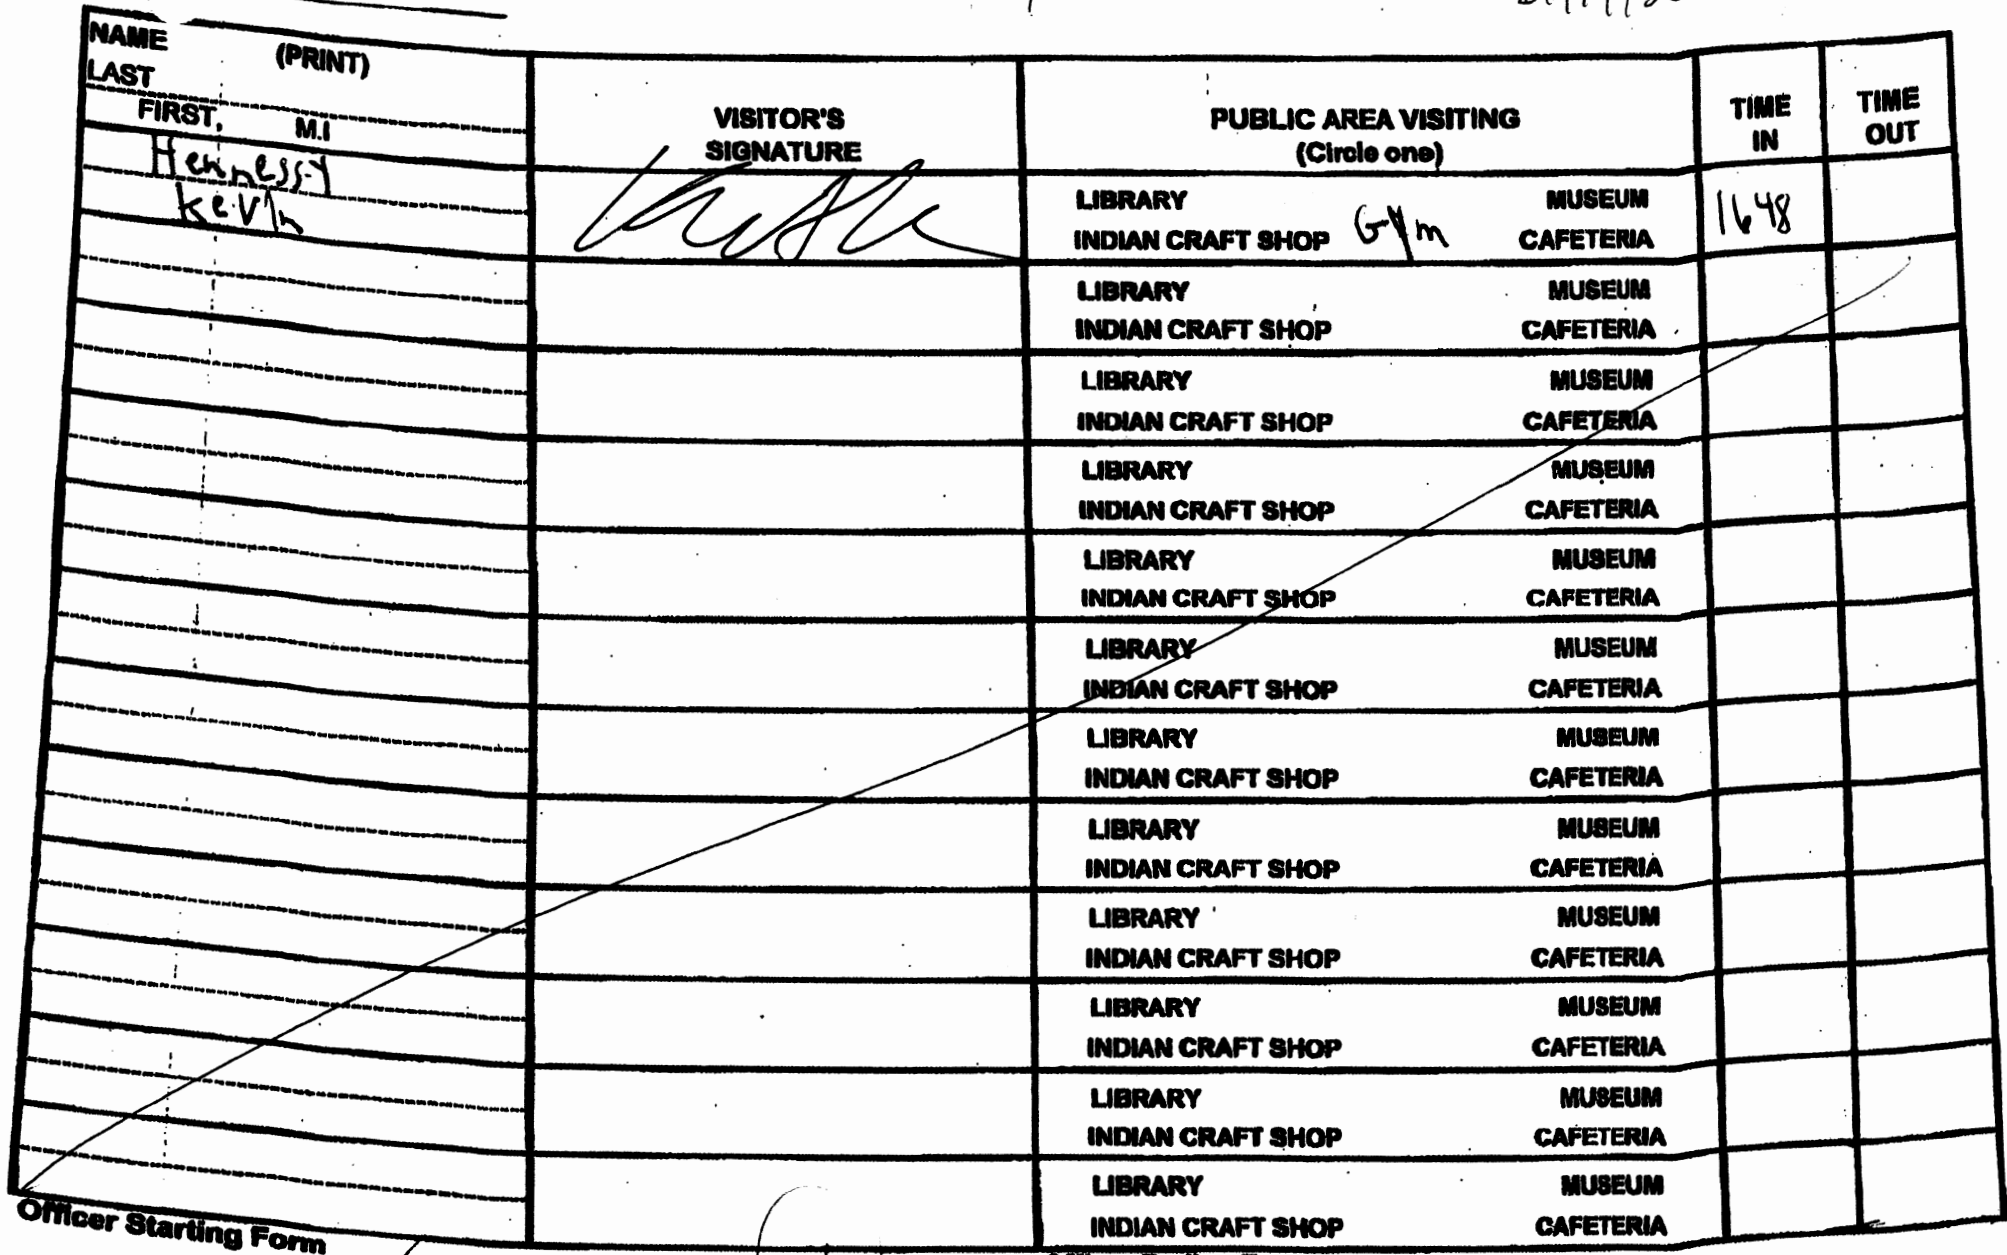 NAME (PRINT)
LAST
FIRST, M.I
VISITOR'S
SIGNATURE
PUBLIC AREA VISITING
(Circle one)
TIME
IN
TIME
OUT
Hennessy
Kevin
LIBRARY MUSEUM
INDIAN CRAFT SHOP Gym CAFETERIA
1648
LIBRARY MUSEUM
INDIAN CRAFT SHOP CAFETERIA
LIBRARY MUSEUM
INDIAN CRAFT SHOP CAFETERIA
LIBRARY MUSEUM
INDIAN CRAFT SHOP CAFETERIA
LIBRARY MUSEUM
INDIAN CRAFT SHOP CAFETERIA
LIBRARY MUSEUM
INDIAN CRAFT SHOP CAFETERIA
LIBRARY MUSEUM
INDIAN CRAFT SHOP CAFETERIA
LIBRARY MUSEUM
INDIAN CRAFT SHOP CAFETERIA
LIBRARY MUSEUM
INDIAN CRAFT SHOP CAFETERIA
LIBRARY MUSEUM
INDIAN CRAFT SHOP CAFETERIA
LIBRARY MUSEUM
INDIAN CRAFT SHOP CAFETERIA
LIBRARY MUSEUM
INDIAN CRAFT SHOP CAFETERIA
Officer Starting Form